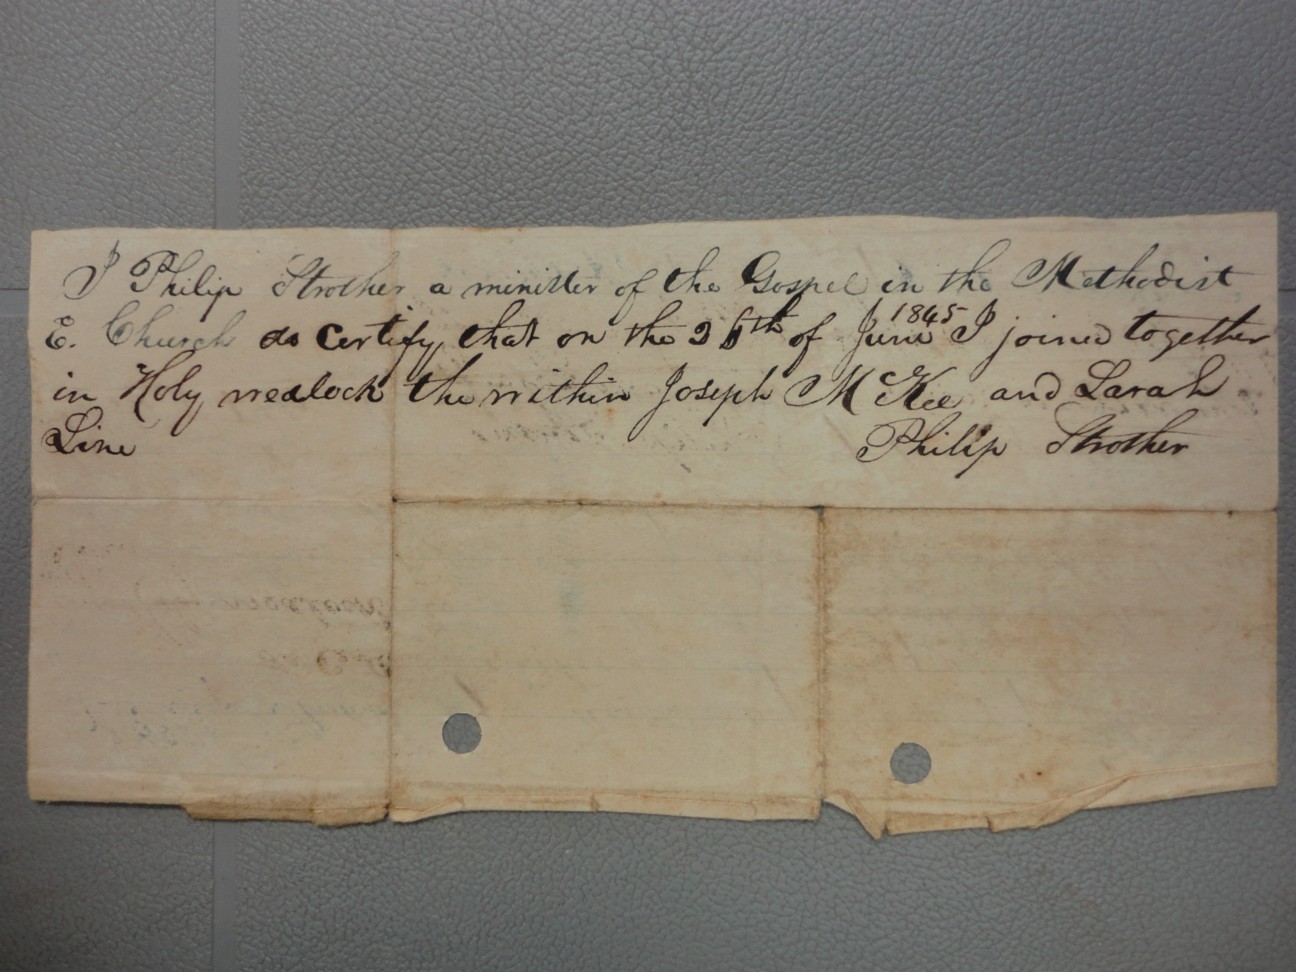 I Philip Strother a minister of the Gospel in the Methodist
E. Church do certify that on the 26th of June 1845 I joined together
in Holy wedlock the within Joseph McKee and Sarah
Line
Philip Strother